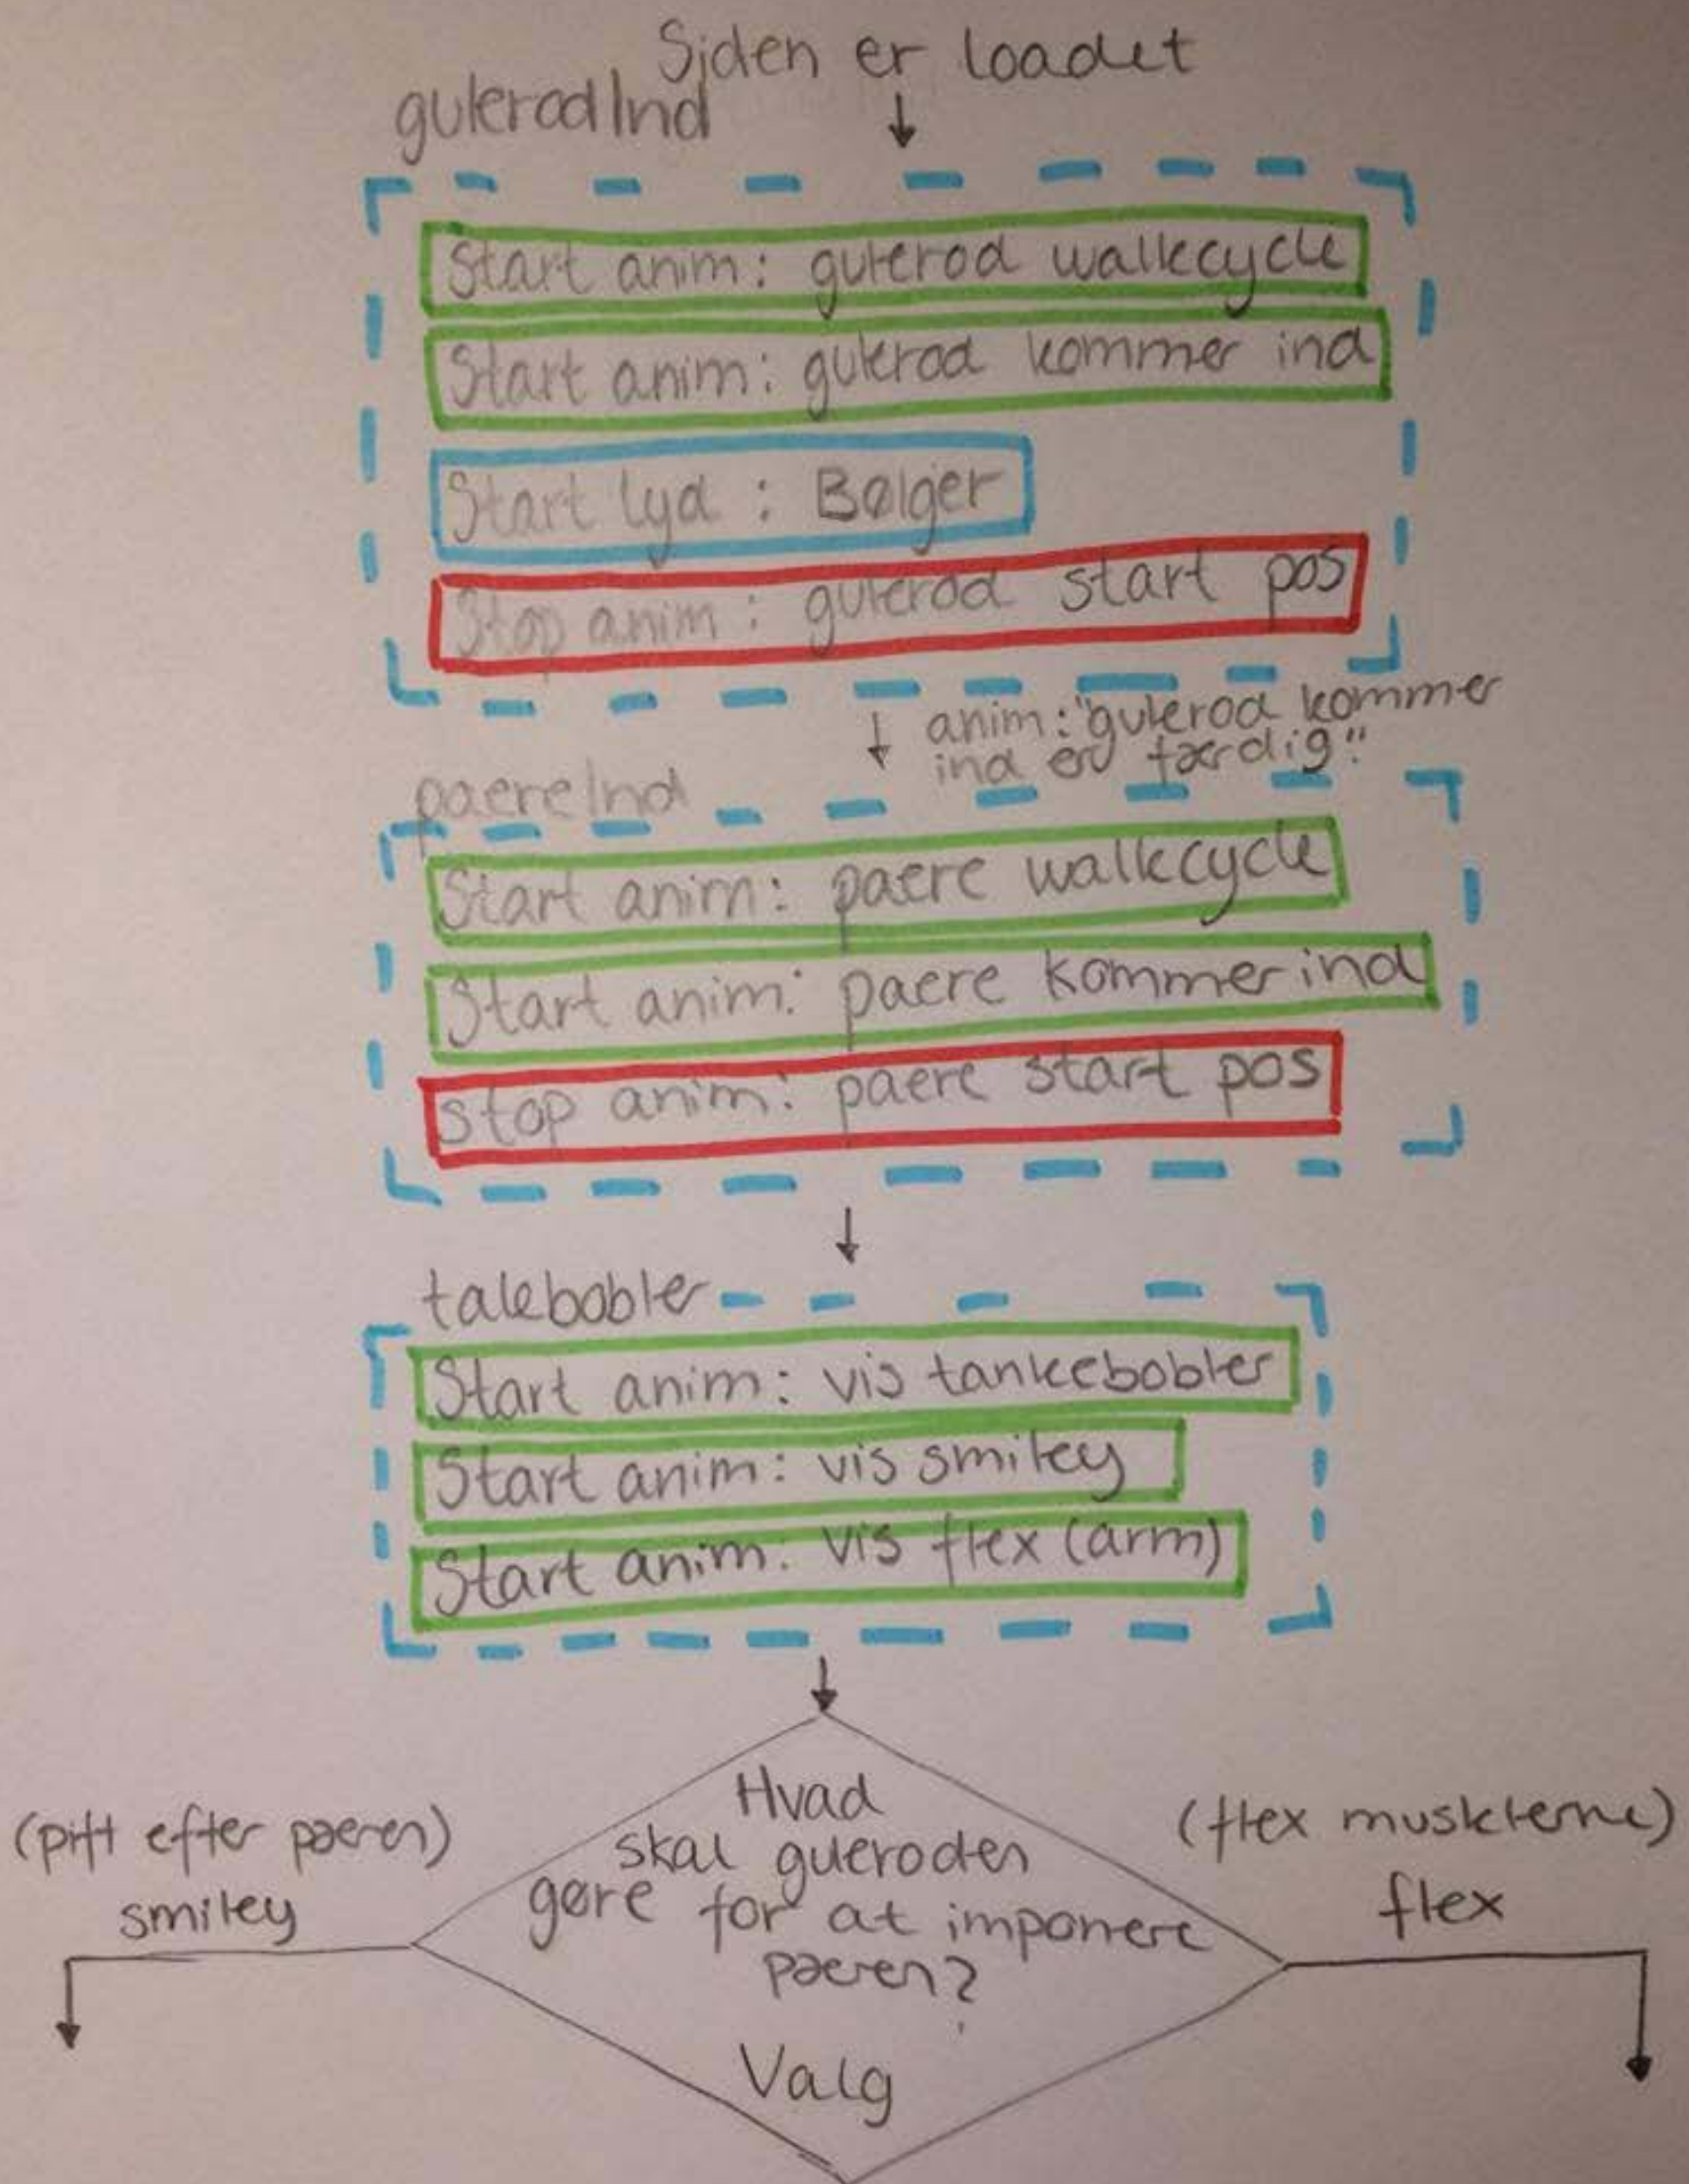 Siden er loadet
gulerodInd
Start anim: gulerod walkcycle
Start anim: gulerod kommer ind
Start lyd : Bølger
Stop anim : gulerod start pos
anim: "gulerod kommer
ind er færdig"
paereInd
Start anim: paere walkcycle
Start anim: paere kommer ind
stop anim: paere start pos
talebobler
Start anim: vis tankebobler
Start anim: vis smiley
Start anim: vis flex (arm)
Hvad
skal gueroden
gøre for at imponere
pæren?
Valg
(pift efter pæren)
smiley
(flex musklerne)
flex